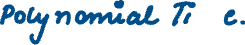 Polynomial Ti e.